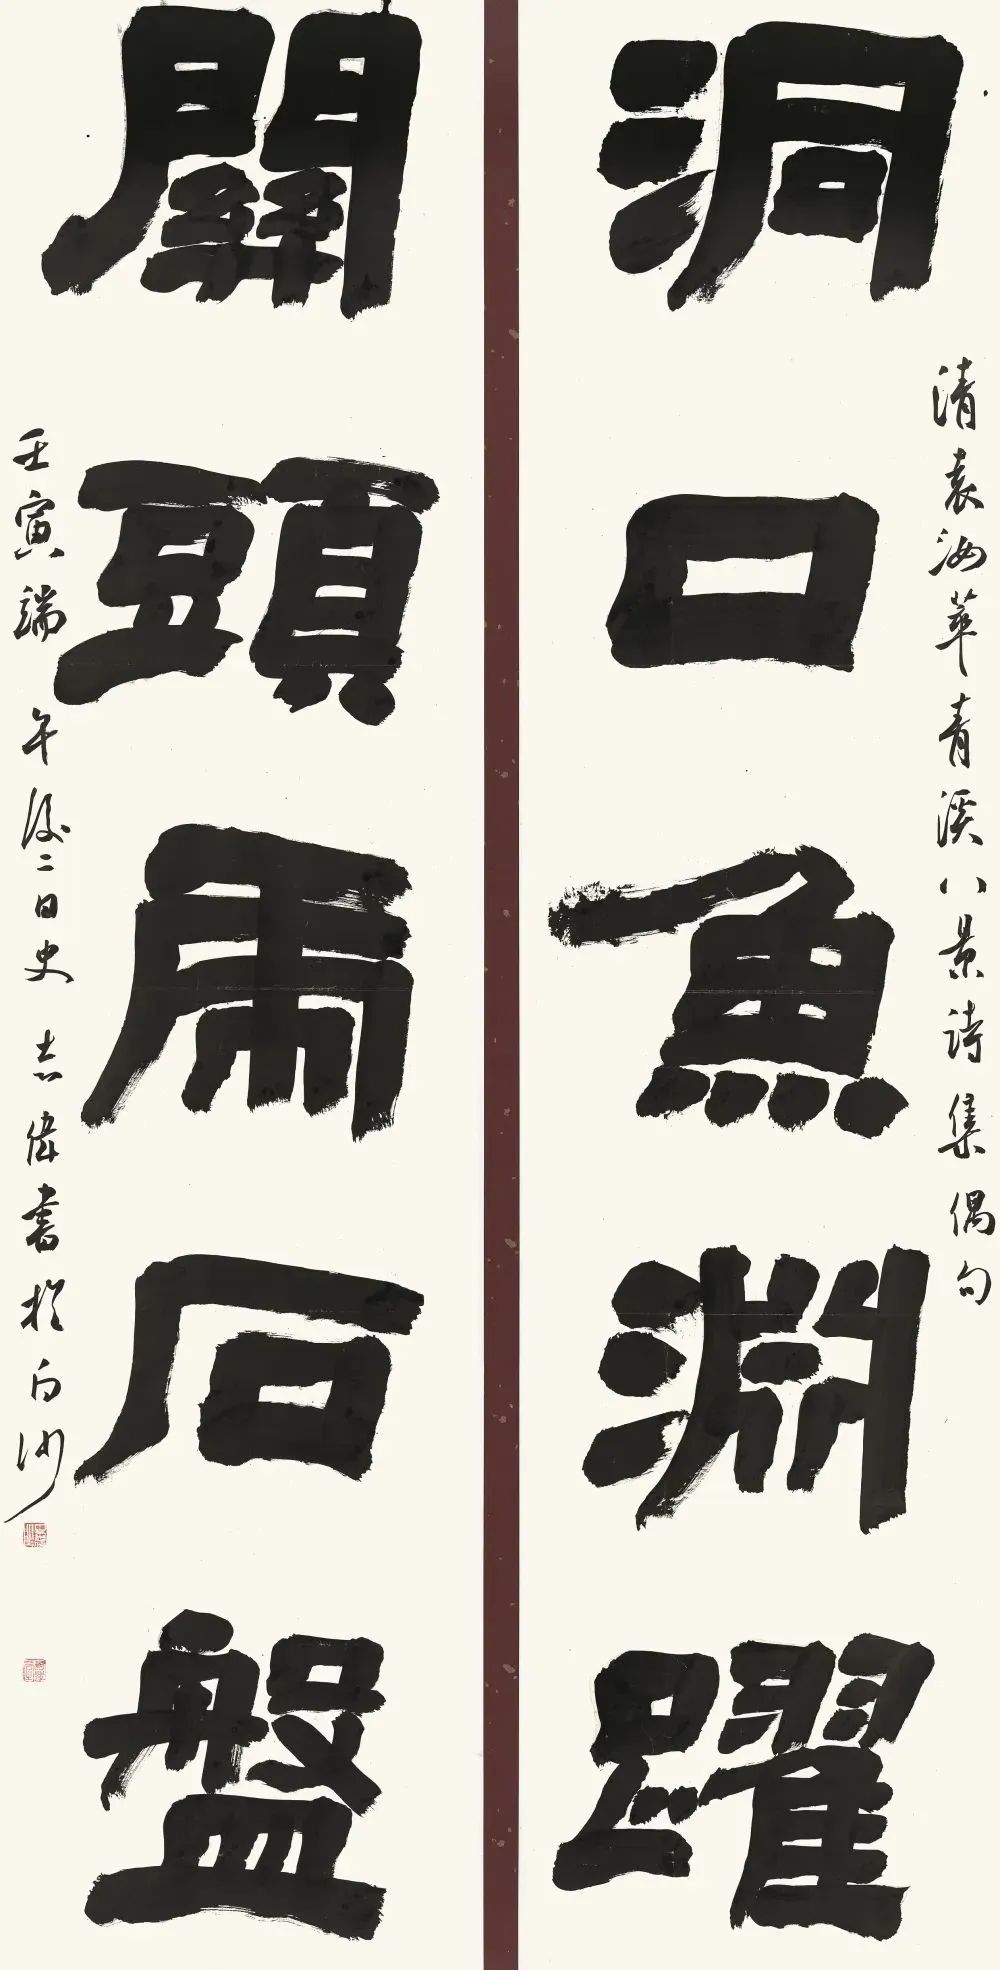 洞口魚淵躍
清袁汝萃青溪八景詩集偶句
關頭虎石盤
壬寅端午後二日史志偉書於白沙